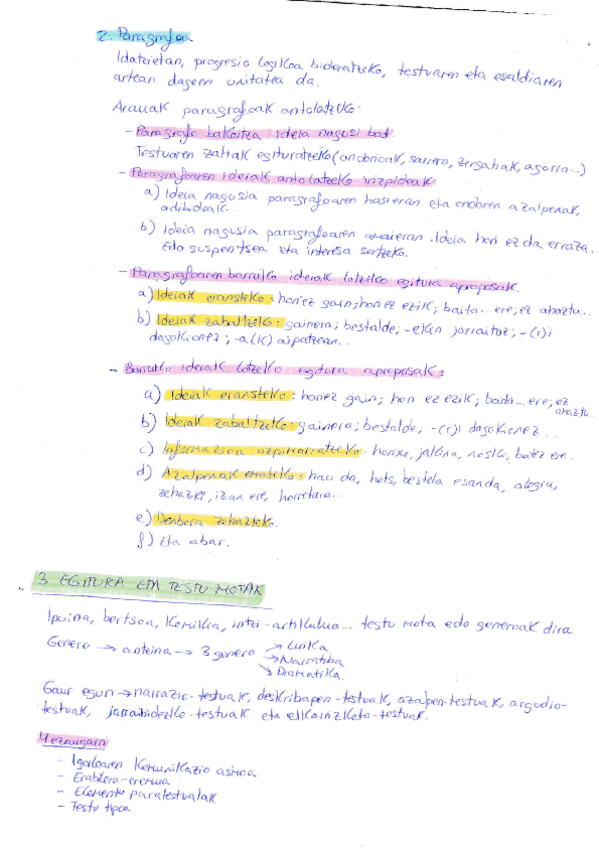 2. Paragrafoa
Idatzietan, progresio logikoa bideratzeko, testuaren eta esaldiaren
artean dagoen unitatea da.
Arauak paragrafoak antolatzeko.
- Paragrafo bakoitza ideia nagusi bat.
Testuaren zatiak egituratzeko (ondorioak, sarrera, zergatiak, agurra...)
- Paragrafoaren ideiak antolatzeko irizpideak
a) Ideia nagusia paragrafoaren hasieran eta ondoren azalpenak,
adibideak...
b) Ideia nagusia paragrafoaren amaieran. Ideia hori ez da erraza.
Edo suspentsea eta interesa sortzeko.
- Paragrafoaren barruko ideiak lotzeko egitura aproposak.
a) Ideiak eransteko: horiez gain; hori ez ezik; baita... ere; ez ahaztu...
b) Ideiak zabaltzeko: gainera; bestalde; -ekin jarraituz; -(r)i
dagokionez; -a(k) aipatzean...
- Barruko ideiak lotzeko egitura aproposak:
a) Ideiak eransteko: horiez gain; hori ez ezik; baita... ere; ez
ahaztu...
b) Ideiak zabaltzeko: gainera; bestalde, -(r)i dagokionez...
c) Informazioa azpimarratzeko: horixe, jakina, noski, batez ere.
d) Azalpenak emateko: hau da, hots, bestela esanda, alegia,
zehazki, izan ere, horretara...
e) Denbora zehazteko.
f) Eta abar.
3 EGITURA ETA TESTU MOTAK
Ipuina, bertsoa, komikia, artikulua... testu mota edo generoak dira
Genero → → 3 genero → Lirika
→ Narratiba
→ Dramatika.
Gaur egun → narrazio-testuak, deskribapen-testuak, azalpen-testuak, argudio-
testuak, jarraibidezko-testuak eta elkarrizketa-testuak.
4 ezaugarri
- Igorlearen komunikazio asmoa
- Erabilera-eremua
- Elementu paratestualak
- Testu tipoa